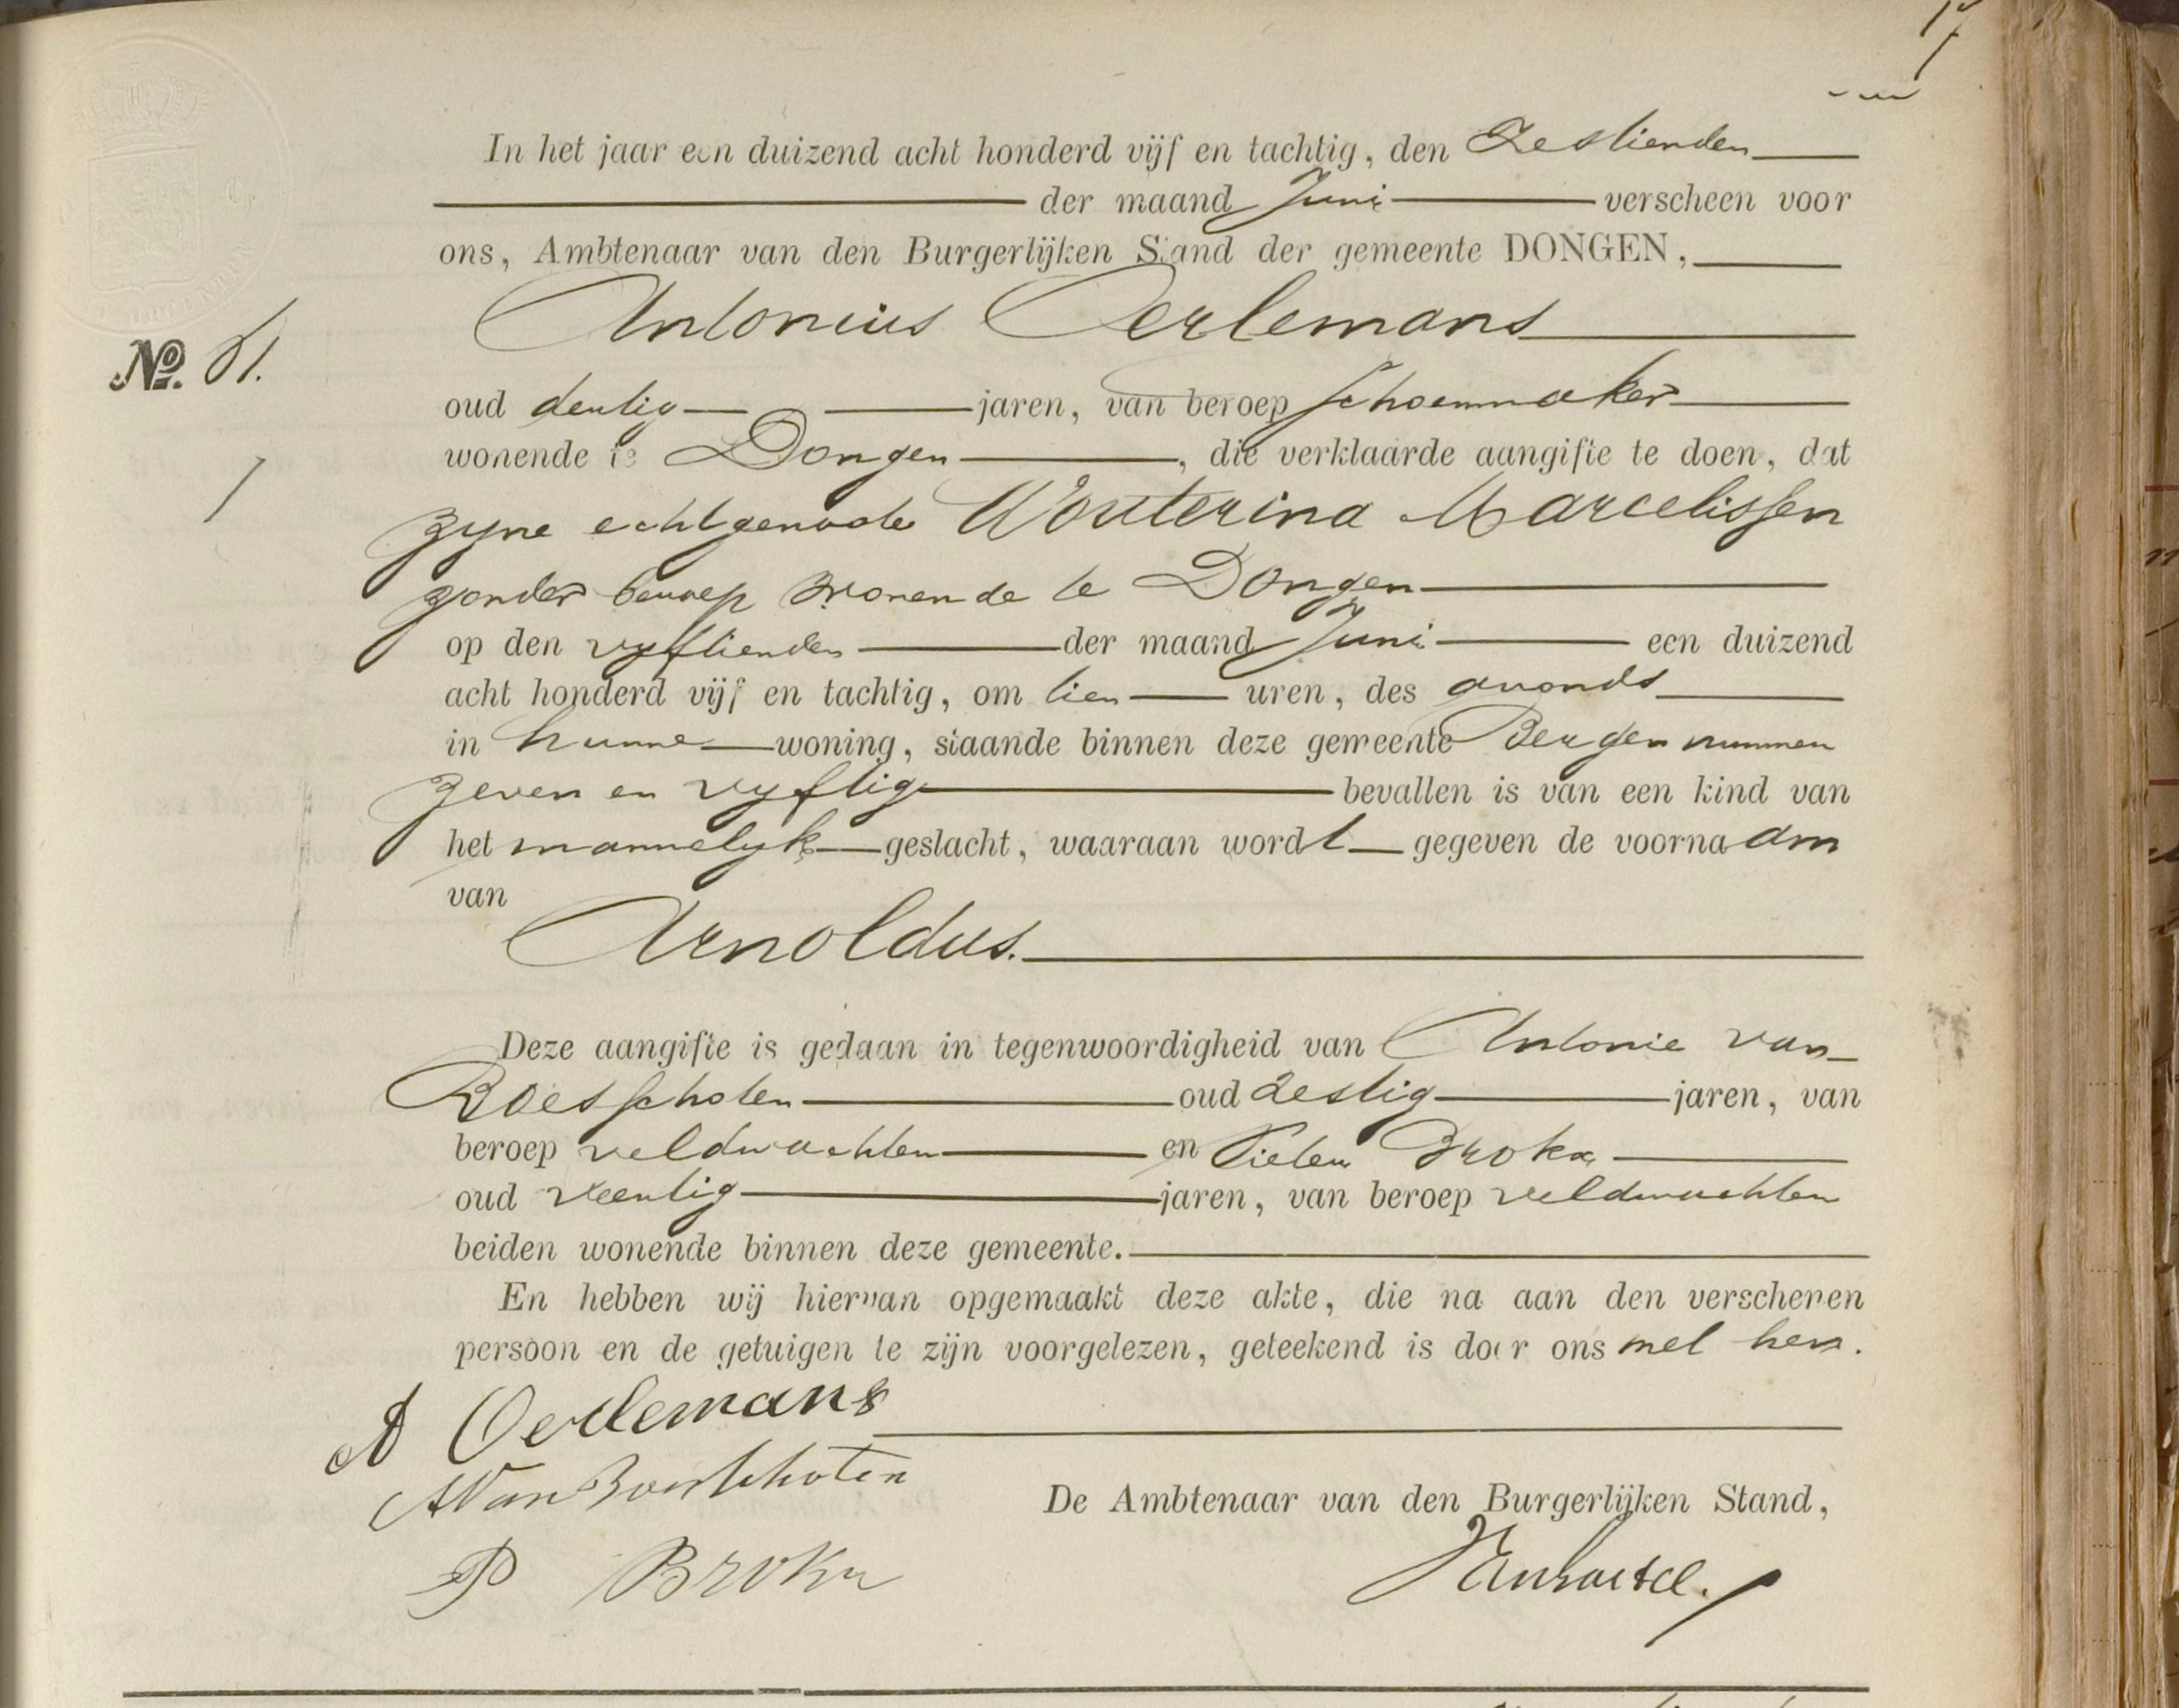 17
In het jaar een duizend acht honderd vijf en tachtig, den Zestienden
der maand Juni verscheen voor
ons, Ambtenaar van den Burgerlijken Stand der gemeente DONGEN,
Antonius Oerlemans
No. 61.
oud dertig jaren, van beroep schoenmaker
wonende te Dongen, die verklaarde aangifte te doen, dat
zyne echtgenoote Wouterina Marcelissen
zonder beroep wonende te Dongen
op den vyftienden der maand Juni een duizend
acht honderd vijf en tachtig, om tien uren, des avonds
in hunne woning, staande binnen deze gemeente Bergen nummer
zeven en vyftig bevallen is van een kind van
het mannelyk geslacht, waaraan wordt gegeven de voornaam
van
Arnoldus.
Deze aangifte is gedaan in tegenwoordigheid van Antonie van
Boesschoten oud zestig jaren, van
beroep veldwachter en Pieter Brokx
oud veertig jaren, van beroep veldwachter
beiden wonende binnen deze gemeente.
En hebben wij hiervan opgemaakt deze akte, die na aan den verschenen
persoon en de getuigen te zijn voorgelezen, geteekend is door ons met hen.
A Oerlemans
A Van Boesschoten
De Ambtenaar van den Burgerlijken Stand,
P Brokx